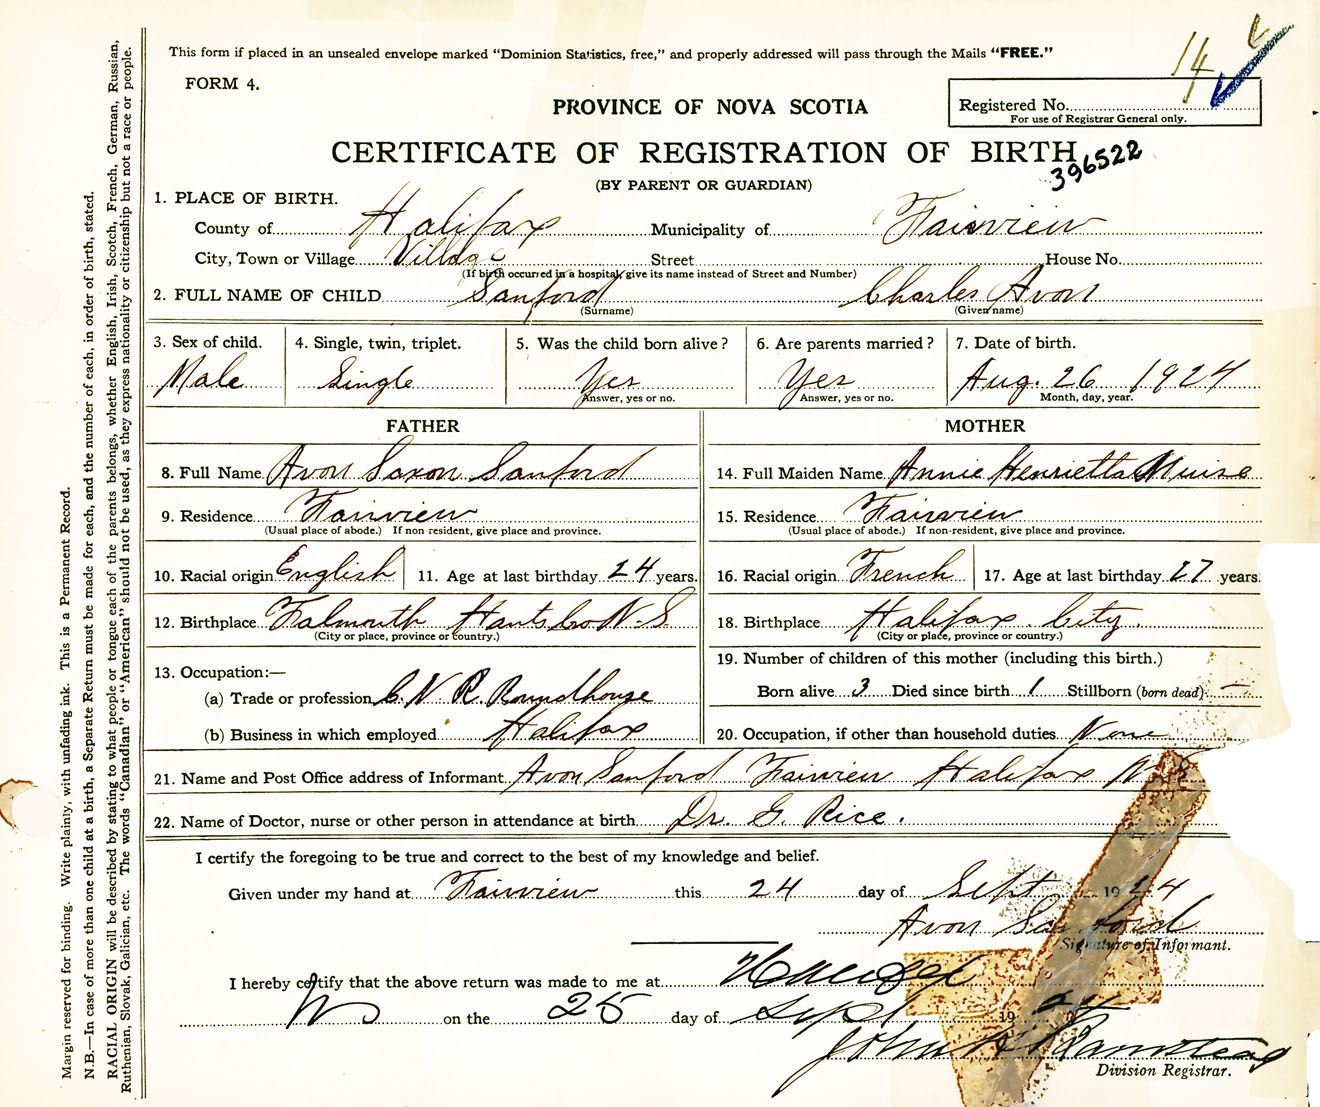 This form if placed in an unsealed envelope marked "Dominion Statistics, free," and properly addressed will pass through the Mails "FREE."
14
FORM 4.
PROVINCE OF NOVA SCOTIA
Registered No.
For use of Registrar General only.
CERTIFICATE OF REGISTRATION OF BIRTH
396522
(BY PARENT OR GUARDIAN)
1. PLACE OF BIRTH.
County of Halifax Municipality of Fairview
City, Town or Village Village Street House No.
(If birth occurred in a hospital, give its name instead of Street and Number)
2. FULL NAME OF CHILD Sanford Charles Avon
(Surname) (Given name)
3. Sex of child. 4. Single, twin, triplet. 5. Was the child born alive? 6. Are parents married? 7. Date of birth.
Male Single Yes Yes Aug. 26 1924
Answer, yes or no. Answer, yes or no. Month, day, year.
FATHER MOTHER
8. Full Name Avon Saxon Sanford 14. Full Maiden Name Annie Henrietta Muise
9. Residence Fairview 15. Residence Fairview
(Usual place of abode.) If non resident, give place and province. (Usual place of abode.) If non-resident, give place and province.
10. Racial origin English 11. Age at last birthday 24 years. 16. Racial origin French 17. Age at last birthday 27 years.
12. Birthplace Falmouth Hants Co N.S. 18. Birthplace Halifax City.
(City or place, province or country.) (City or place, province or country.)
13. Occupation:— 19. Number of children of this mother (including this birth.)
(a) Trade or profession C. N. R. Roundhouse Born alive 3 Died since birth 1 Stillborn (born dead) —
(b) Business in which employed Halifax 20. Occupation, if other than household duties None
21. Name and Post Office address of Informant Avon Sanford Fairview Halifax N.S
22. Name of Doctor, nurse or other person in attendance at birth Dr. G. Rice.
I certify the foregoing to be true and correct to the best of my knowledge and belief.
Given under my hand at Fairview this 24 day of Sept 1924
Avon Sanford
Signature of Informant.
I hereby certify that the above return was made to me at
NS on the 25 day of Sept 1924
John
Division Registrar.
Margin reserved for binding. Write plainly, with unfading ink. This is a Permanent Record.
N.B.—In case of more than one child at a birth, a Separate Return must be made for each, and the number of each, in order of birth, stated.
RACIAL ORIGIN will be described by stating to what people or tongue each of the parents belongs, whether English, Irish, Scotch, French, German, Russian,
Ruthenian, Slovak, Galician, etc. The words "Canadian" or "American" should not be used, as they express nationality or citizenship but not a race or people.